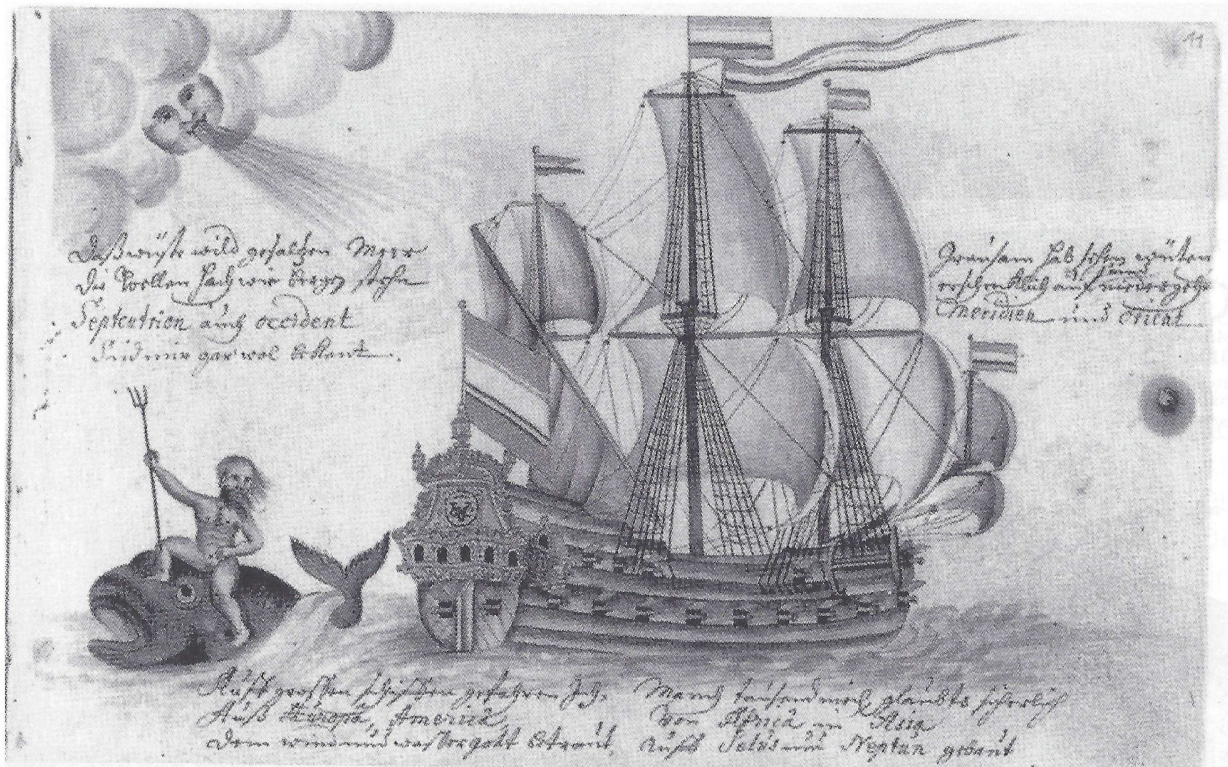 11
Daß wüst wild gesaltzen Meer
die Wellen hoch wie berge stehn
Septentrion auch occident
Sind mir gar wol bekant.
Grausam hab sehen wüten
erschrecklich auf und nieder gehn
Meridien und Orient
Auff grossen schiffen gefahren Ich,
Auß Europa, America,
dem wind und wasser gott
Manch tausend meil glaubts sicherlich
von Africa in Asia
Auff und Neptun gebaut